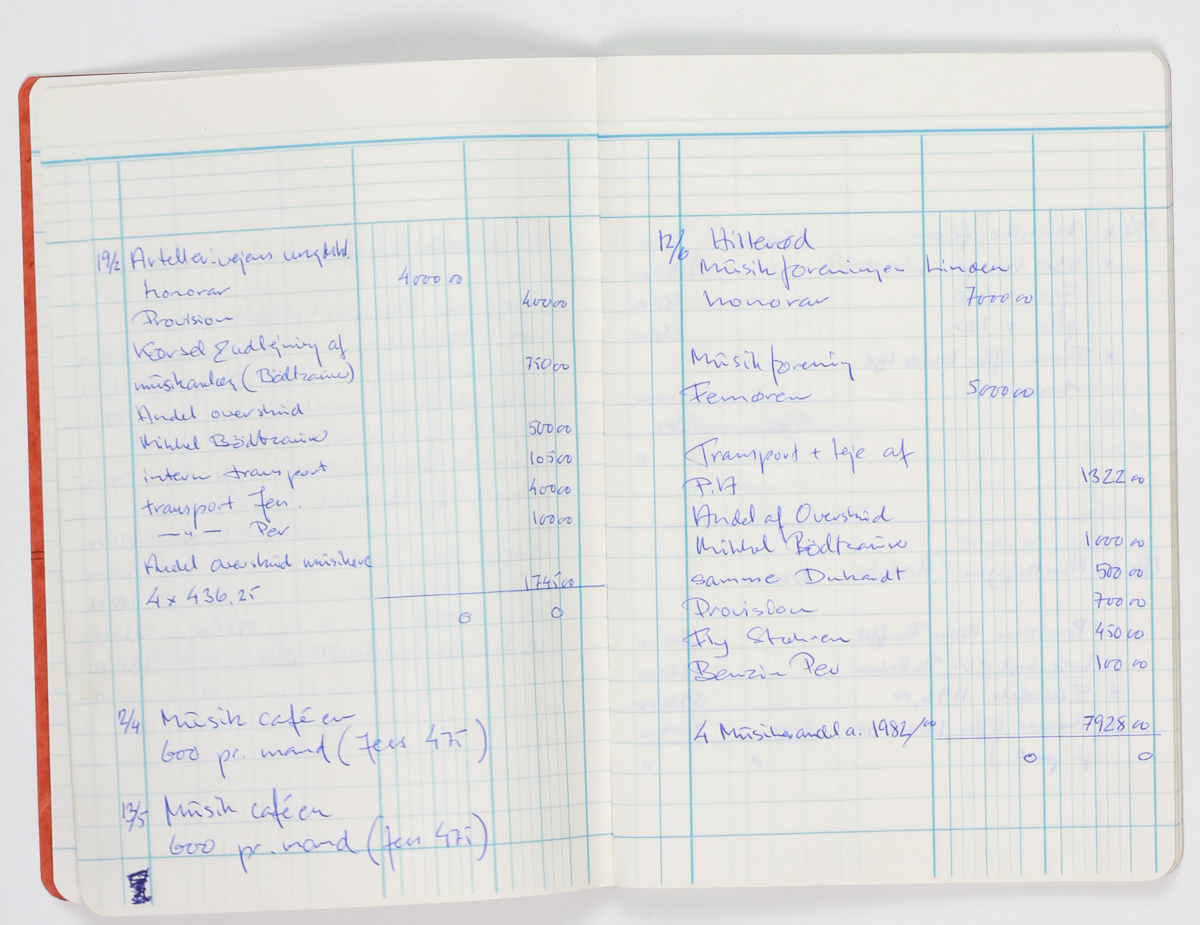 19/2 Artellerivejens ungdskl.
honorar 4000 00
Provision 400 00
Kørsel & udlejning af
musikanlæg (Bödtzauw) 750 00
Andel overskud
Mikkel Bödtzauw 500 00
intern transport 105 00
transport Jens. 400 00
— " — Per 100 00
Andel overskud musikere
4 x 436.25 1745 00
0 0
2/4 Müsik caféen
600 pr. mand (Jens 475)
13/5 Müsik caféen
600 pr. mand (Jens 475)
12/6 Hillerød
Müsikforeningen Linden
honorar 7000 00
Müsikforening
Femøren 5000 00
Transport + leje af
P.A 1322 00
Andel af Overskud
Mikkel Bödtzauw 1000 00
samme Duhardt 500 00
Provision 700 00
Fly Stahren 450 00
Benzin Per 100 00
4 Müsikerandel a. 1982/00 7928 00
0 0